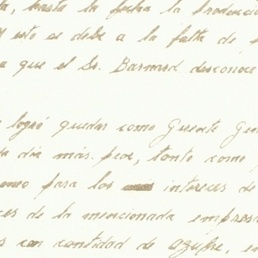 , hasta la fecha la producci
y esto se debe a la falta de
a que el Sr. Barnard desconoce
logró quedar como Gerente Ge
día más. peor, tanto como
como para los intereses de
es de la mencionada empresa
s con cantidad de azufre, e